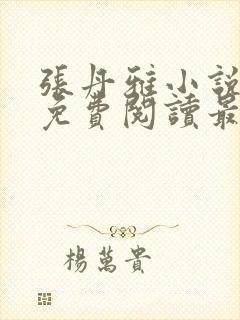 張丹雅小說
免費閱讀最
楊萬貴